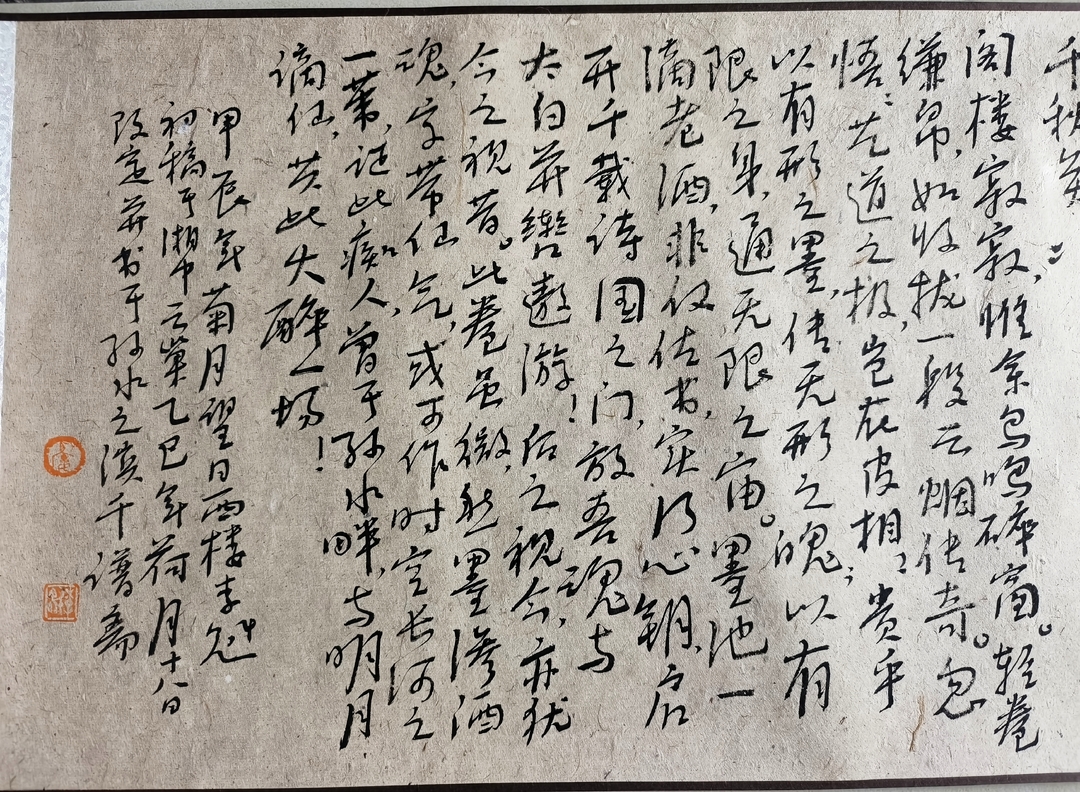 千秋
阁楼寂寂，惟余鸟鸣碎窗。轻卷
缣帛，如收拢一段云烟传奇。忽
悟：艺道之极，岂在皮相？贵乎
以有形之墨，传无形之魄；以有
限之身，通无限之宙。墨池一
滴老酒，非仅佐书，实乃心钥，启
开千载诗国之门，放吾魂与
太白并辔遨游！后之视今，亦犹
今之视昔。此卷虽微，然墨渗酒
魂，字带仙气，或可作时空长河之
一苇，证此痴人，曾于孙水畔，与明月
谪仙，共此大醉一场！
甲辰年菊月望日西楼李
初稿于湘中云巢乙巳年荷月十八日
改定并书于孙水之滨千谱斋